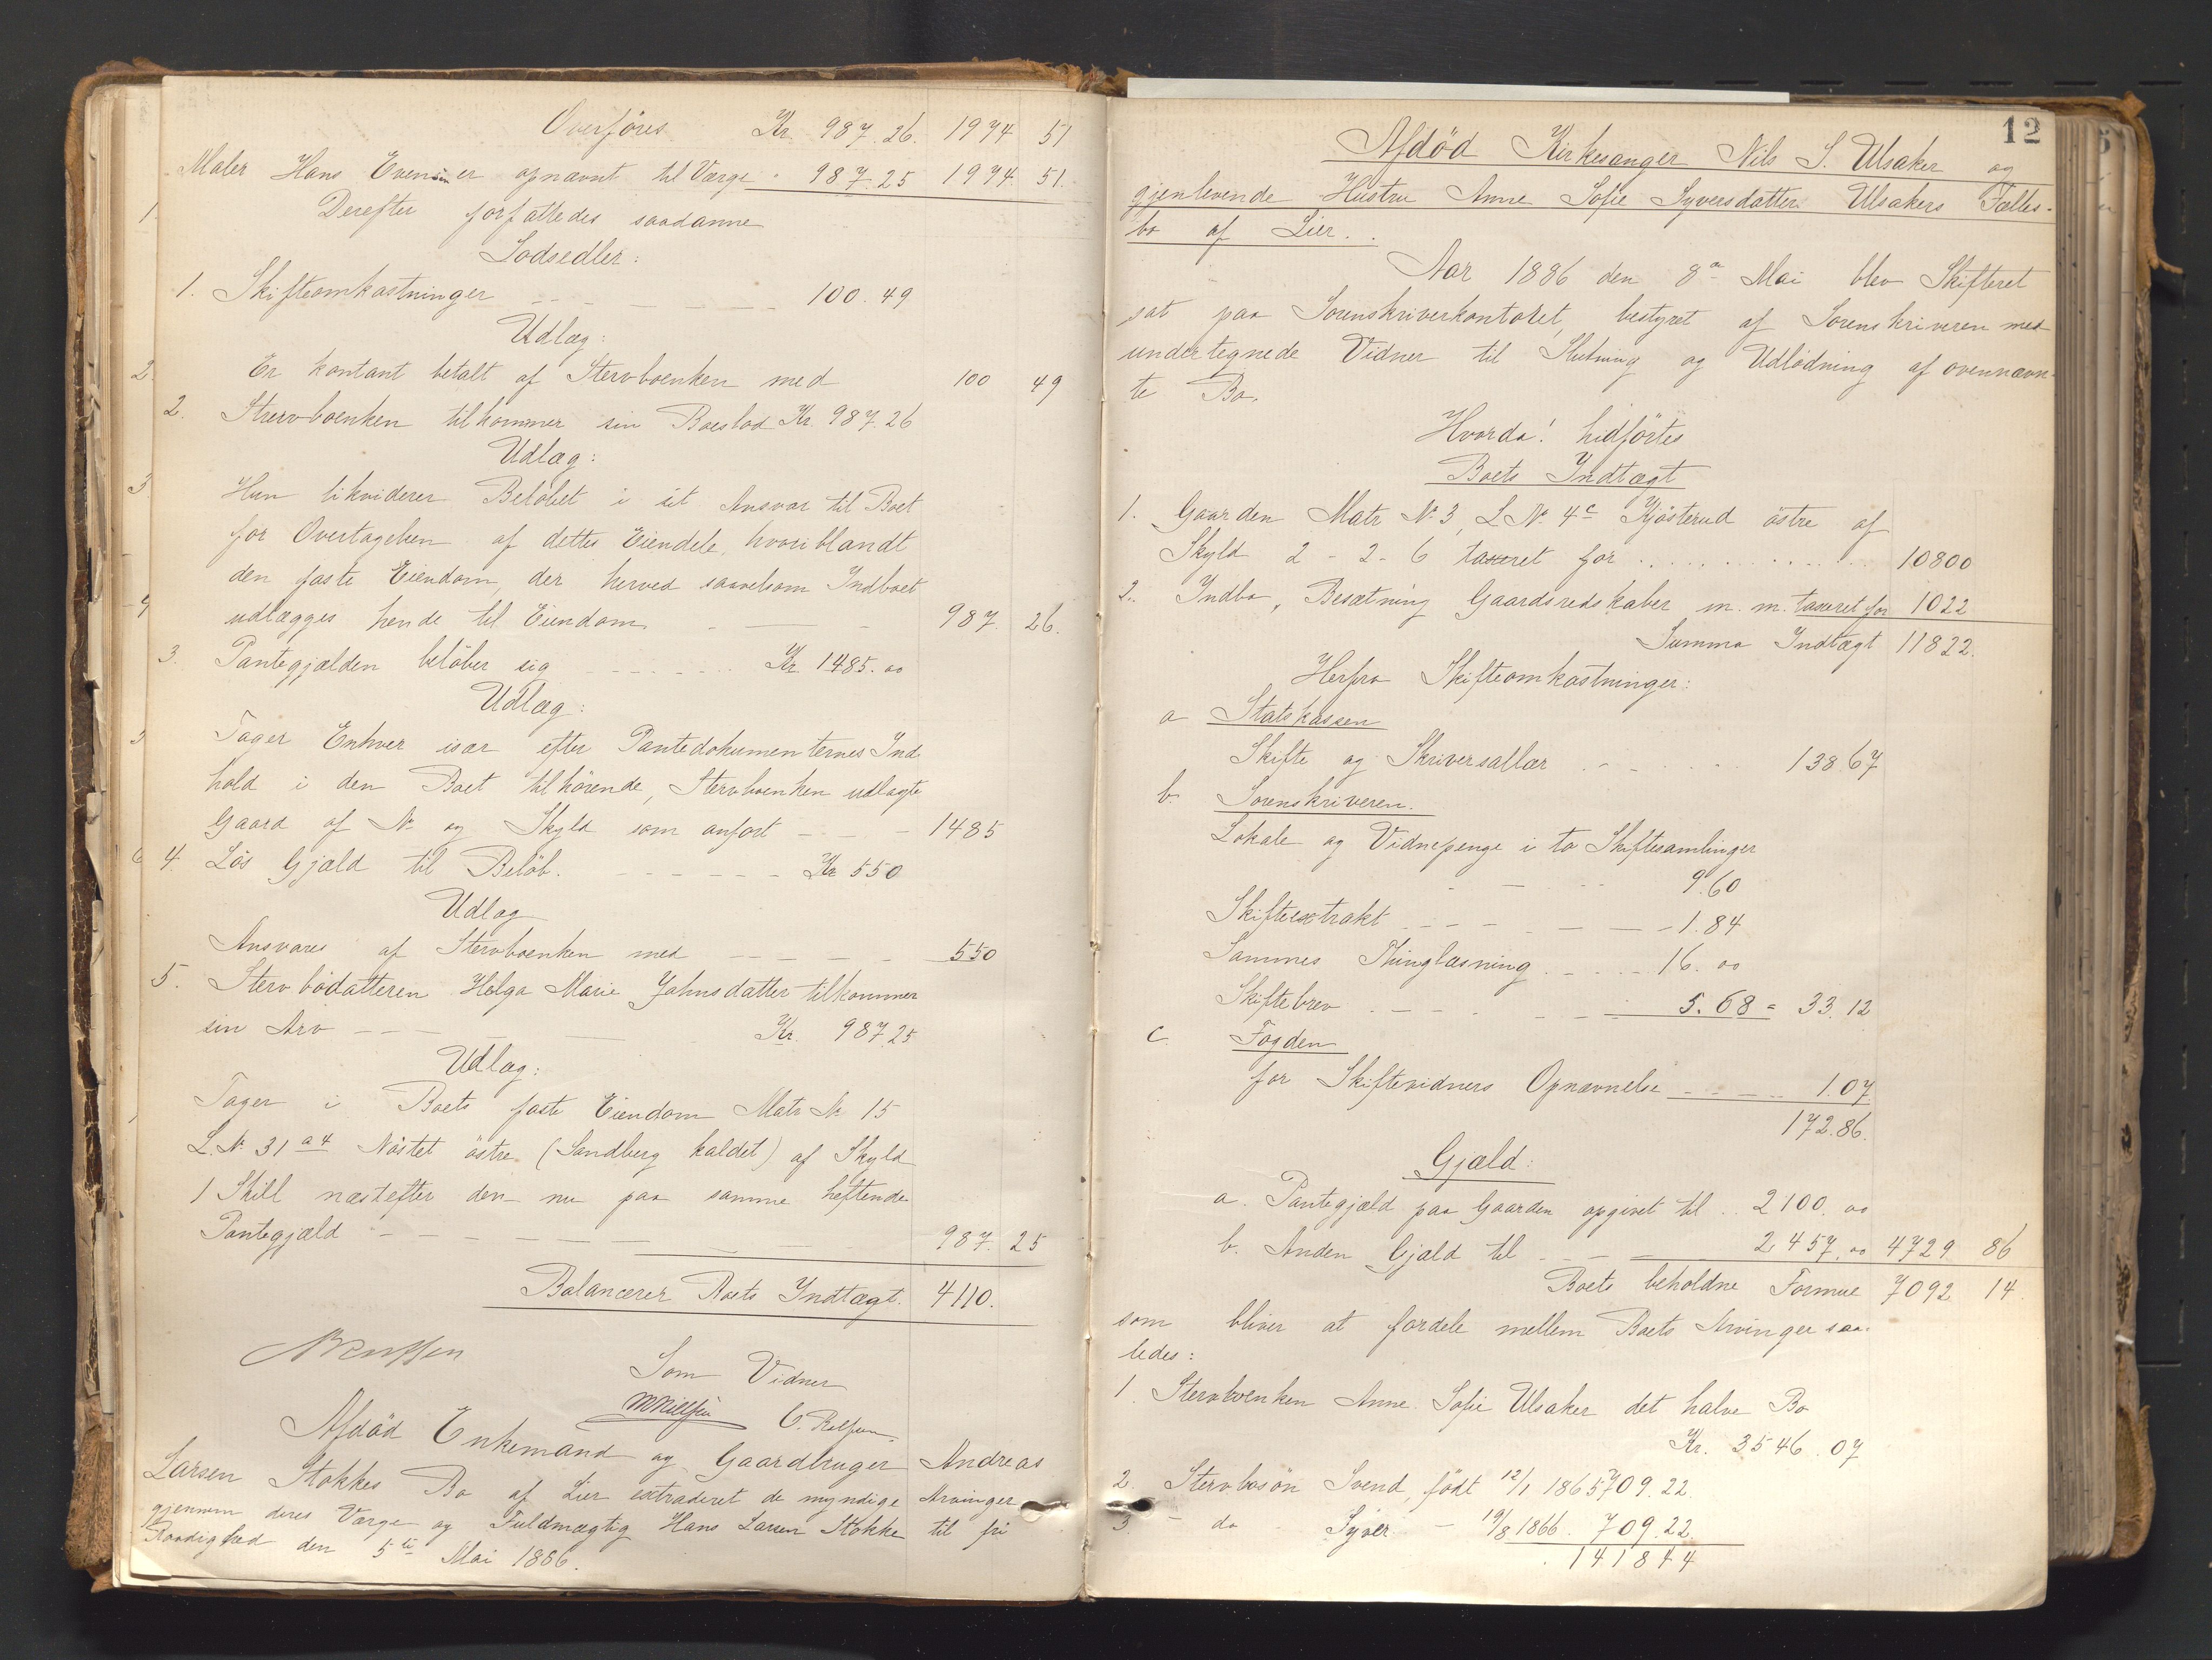 Overføres Kr. 987.26. 1974 51
Maler Hans Evensen er opnævnt til Værge " 987.25 1974. 51.
Derefter forfattedes saadanne
Lodsedler:
1. Skifteomkostninger 100.49
Udlæg:
Er kontant betalt af Stervboenken med 100 49
2. Stervboenken tilkommer sin Boeslod Kr. 987.26
Udlæg:
Hun likviderer Beløbet i sit Ansvar til Boet
for Overtagelsen af dettes Eiendele, hvoriblandt
den faste Eiendom, der herved saavelsom Indboet
udlægges hende til Eiendom 987. 26.
3. Pantegjælden beløber sig Kr. 1485.00
Udlæg:
Tager Enhver især efter Pantedokumenternes Ind-
hold i den Boet tilhørende, Stervboenken udlagte
Gaard af No og Skyld som anført 1485
4. Løs Gjæld til Beløb. Kr 550
Udlæg
Ansvares af Stervboenken med 550
5. Stervbødatteren Helga Marie Johnsdatter tilkommer
sin Arv Kr. 987.25
Udlæg:
Tager i Boets faste Eiendom Matr No 15
L. No 31 a4 Nøstet østre (Sandberg kaldet) af Skyld
1 Skill næstefter den nu paa samme heftende
Pantegjæld 987. 25
Balancerer Boets Indtægt. 4110.
Som Vidner
Afdød Enkemand og Gaardbruger Andreas
Larsen Stokkes Bo af Lier extraderet de myndige Arvinger
gjennem deres Værge og Fuldmægtig Hans Larsen Stokke til fri
Raadighed den 5te Mai 1886.
12
Afdød Kirkesanger Nils S. Ulsaker og
gjenlevende Hustru Anne Sofie Syversdatter Ulsakers Fælles-
bo af Lier.
Aar 1886 den 8de Mai blev Skifteret
sat paa Sorenskriverkontoret, bestyret af Sorenskriveren med
undertegnede Vidner til Slutning og Udlodning af ovennævn-
te Bo.
Hvorda! hidførtes
Boets Indtægt
1. Gaarden Matr No 3, L No 4c Kjøsterud østre af
Skyld 2 - 2 - 6 taxeret for 10800
2. Indbo, Besætning Gaardsredskaber m. m. taxeret for 1022
Summa Indtægt 11822.
Herfra Skifteomkostninger:
a Statskassen
Skifte og Skriversallær 138.67
b. Sorenskriveren.
Lokale og Vidnepenge i to Skiftesamlinger
9.60
Skifteextrakt 1.84
Sammes Thinglæsning 16.00
Skiftebrev 5.68 = 33.12
c. Fogden
for Skiftevidners Opnævnelse 1.07.
172.86.
Gjæld:
a. Pantegjæld paa Gaarden opgivet til 2100.00
b. Anden Gjæld til 2457.00 4729 86
Boets beholdne Formue 7092 14
som bliver at fordele mellem Boets Arvinger saa-
ledes:
1. Stervboenken Anne Sofie Ulsaker det halve Bo
Kr. 3546.07
2. Stervbosøn Svend, født 12/1 1865 709.22.
3. do Syver 19/8 1866. 709.22.
1418 44